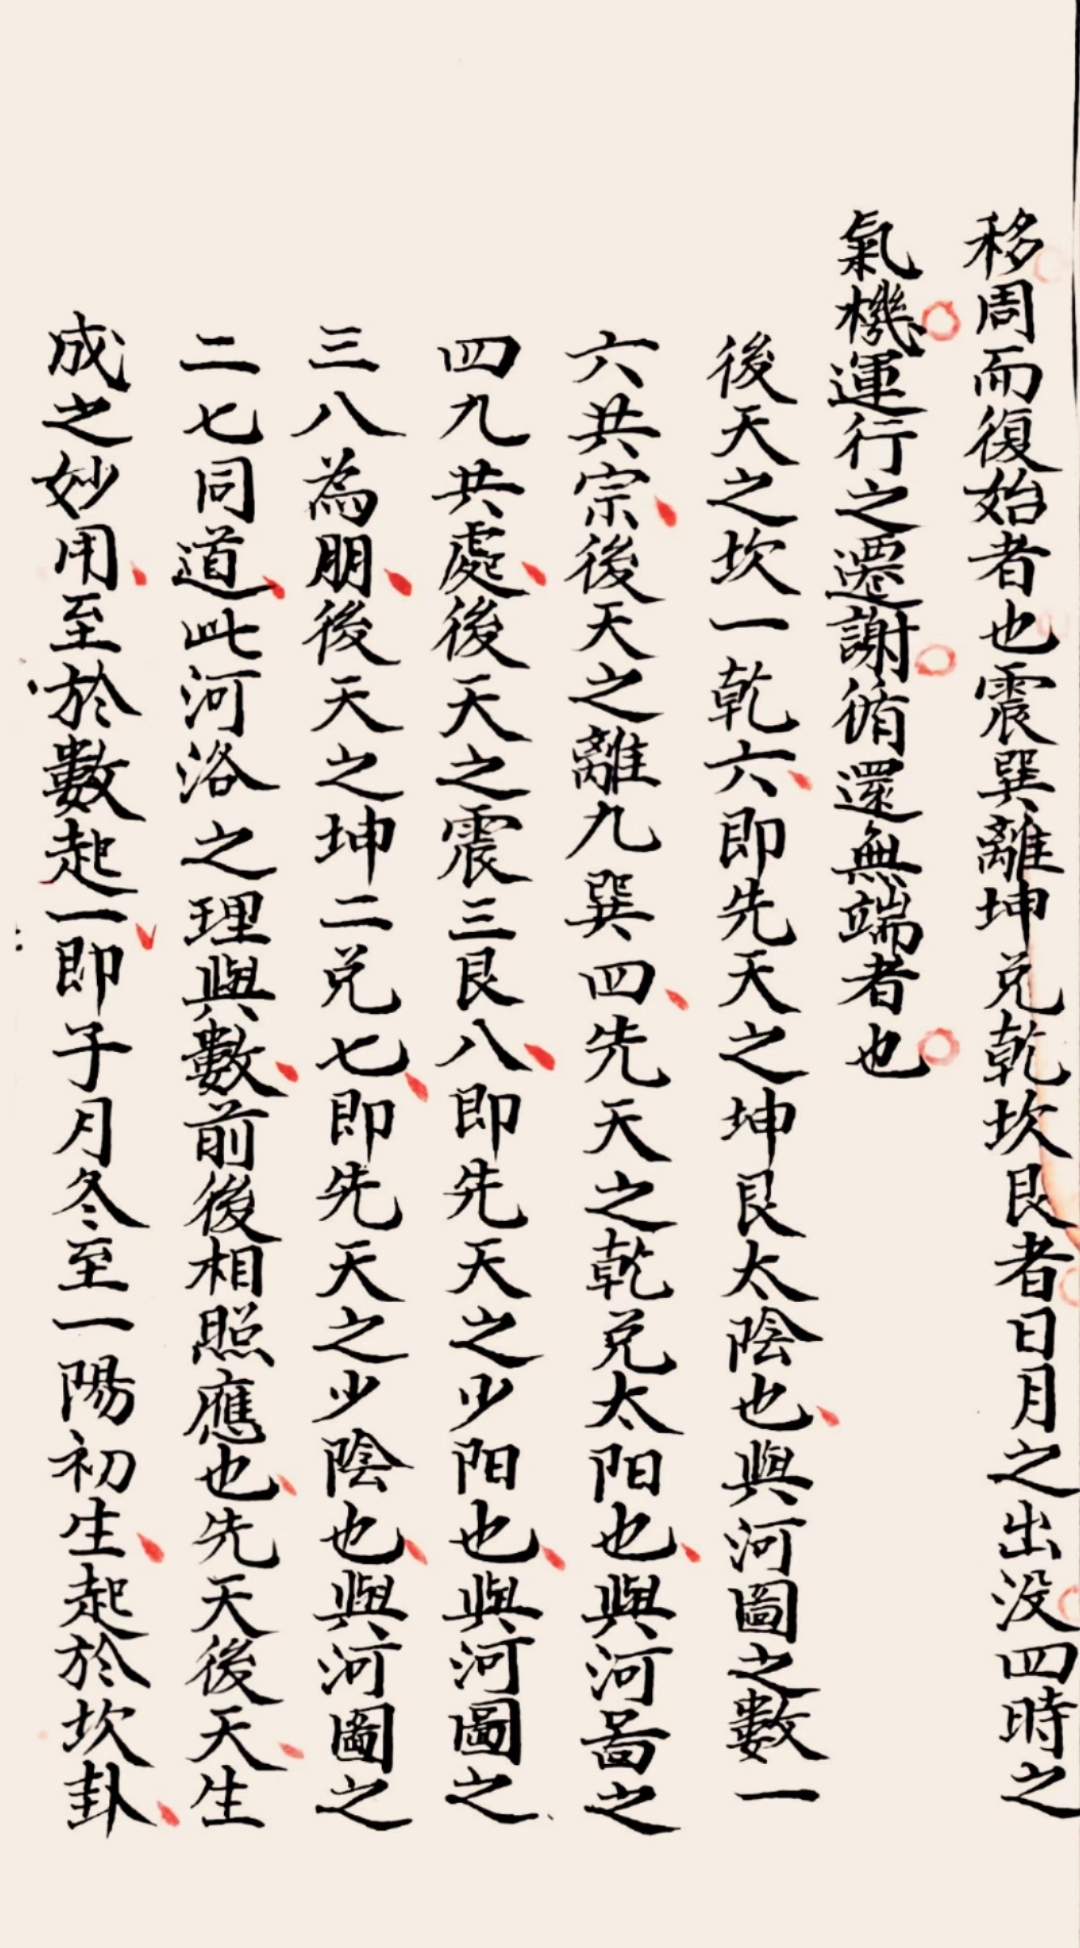 移周而復始者也震巽離坤兑乾坎艮者日月之出没四時之
氣機運行之遷謝循還無端者也
後天之坎一乾六即先天之坤艮太陰也與河圖之數一
六共宗後天之離九巽四先天之乾兑太阳也與河啚之
四九共處後天之震三艮八即先天之少阳也與河圖之
三八為朋後天之坤二兑七即先天之少陰也與河圖之
二七同道此河洛之理與數前後相照應也先天後天生
成之妙用至於數起一即子月冬至一陽初生起於坎卦